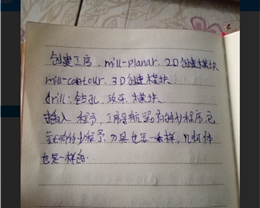 创建工序，mill-planar，2D创建模块
mill-contour，3D创建模块
drill：钻孔，攻牙，模块，
插入 程序，工序导航
程序，刀具也是一样，几何体
也是一样的。